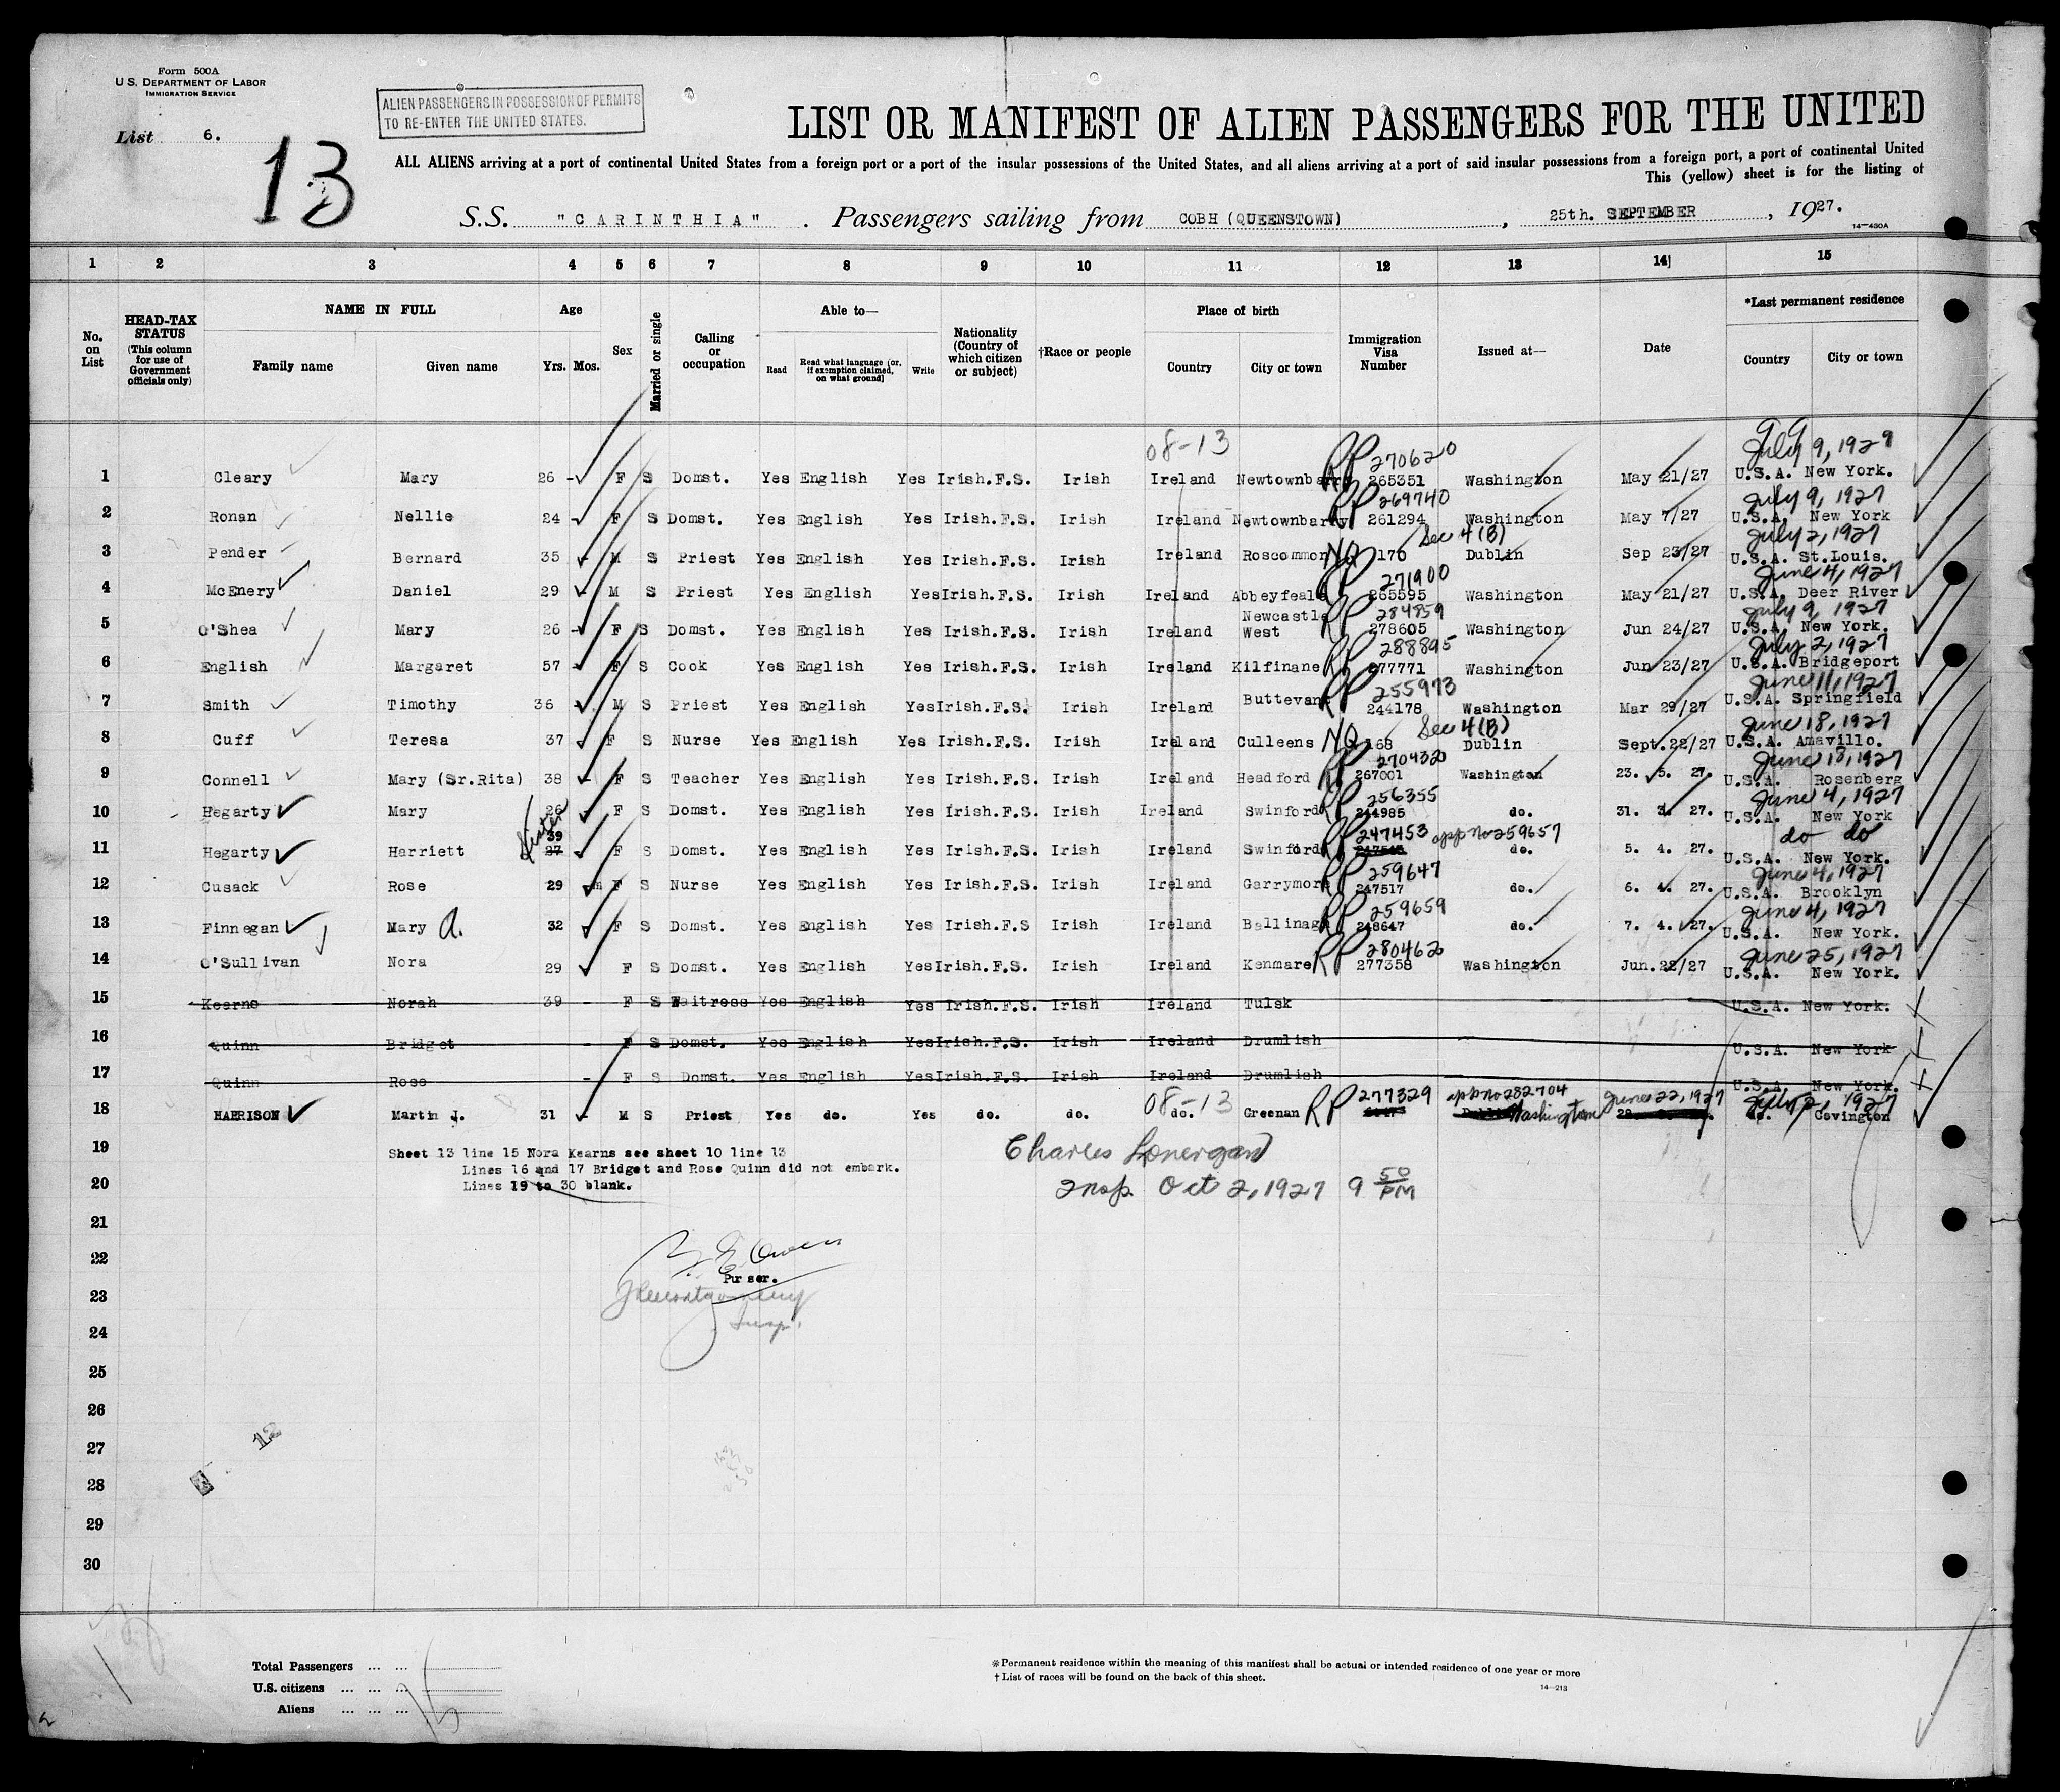 Form 500A
U.S. DEPARTMENT OF LABOR
IMMIGRATION SERVICE
List 6.
13
ALIEN PASSENGERS IN POSSESSION OF PERMITS
TO RE-ENTER THE UNITED STATES.
LIST OR MANIFEST OF ALIEN PASSENGERS FOR THE UNITED
ALL ALIENS arriving at a port of continental United States from a foreign port or a port of the insular possessions of the United States, and all aliens arriving at a port of said insular possessions from a foreign port, a port of continental United
This (yellow) sheet is for the listing of
S.S. "CARINTHIA". Passengers sailing from COBH (QUEENSTOWN), 25th. SEPTEMBER, 1927.
14—430A
1 2 3 4 5 6 7 8 9 10 11 12 13 14 15
No. on List
HEAD-TAX STATUS (This column for use of Government officials only)
NAME IN FULL Family name Given name
Age Yrs. Mos.
Sex
Married or single
Calling or occupation
Able to— Read Read what language [or, if exemption claimed, on what ground] Write
Nationality (Country of which citizen or subject)
†Race or people
Place of birth Country City or town
Immigration Visa Number
Issued at—
Date
*Last permanent residence Country City or town
08-13
1 Cleary Mary 26 - F S Domst. Yes English Yes Irish.F.S. Irish Ireland Newtownbarry RP 270620 265351 Washington May 21/27 July 9, 1927 U.S.A. New York.
2 Ronan Nellie 24 - F S Domst. Yes English Yes Irish.F.S. Irish Ireland Newtownbarry RP 269740 261294 Washington May 7/27 July 9, 1927 U.S.A. New York
3 Pender Bernard 35 - M S Priest Yes English Yes Irish.F.S. Irish Ireland Roscommon NQ Sec 4(B) 170 Dublin Sep 23/27 July 2, 1927 U.S.A. St.Louis.
4 McEnery Daniel 29 - M S Priest Yes English Yes Irish.F.S. Irish Ireland Abbeyfeale RP 271900 265595 Washington May 21/27 June 4, 1927 U.S.A. Deer River
5 O'Shea Mary 26 - F S Domst. Yes English Yes Irish.F.S. Irish Ireland Newcastle West RP 284859 278605 Washington Jun 24/27 July 9, 1927 U.S.A. New York.
6 English Margaret 57 - F S Cook Yes English Yes Irish.F.S. Irish Ireland Kilfinane RP 288895 277771 Washington Jun 23/27 July 2, 1927 U.S.A. Bridgeport
7 Smith Timothy 36 - M S Priest Yes English Yes Irish.F.S. Irish Ireland Buttevant RP 255973 244178 Washington Mar 29/27 June 11, 1927 U.S.A. Springfield
8 Cuff Teresa 37 - F S Nurse Yes English Yes Irish.F.S. Irish Ireland Culleens NQ Sec 4(B) 168 Dublin Sept.22/27 June 18, 1927 U.S.A. Amavillo.
9 Connell Mary (Sr.Rita) 38 - F S Teacher Yes English Yes Irish.F.S. Irish Ireland Headford RP 270432 267001 Washington 23. 5. 27. June 18, 1927 U.S.A. Rosenberg
10 Hegarty Mary 26 - F S Domst. Yes English Yes Irish.F.S. Irish Ireland Swinford RP 256355 244985 do. 31. 3. 27. June 4, 1927 U.S.A. New York
Sister
11 Hegarty Harriett 39 27 - F S Domst. Yes English Yes Irish.F.S. Irish Ireland Swinford RP 247453 app no 259657 do. 5. 4. 27. do do U.S.A. New York.
12 Cusack Rose 29 F S Nurse Yes English Yes Irish.F.S. Irish Ireland Garrymore RP 259647 247517 do. 6. 4. 27. June 4, 1927 U.S.A. Brooklyn
13 Finnegan Mary A. 32 - F S Domst. Yes English Yes Irish.F.S Irish Ireland Ballinagh RP 259659 248647 do. 7. 4. 27. June 4, 1927 U.S.A. New York.
14 O'Sullivan Nora 29 F S Domst. Yes English Yes Irish.F.S. Irish Ireland Kenmare RP 280462 277358 Washington Jun.22/27 June 25, 1927 U.S.A. New York.
15 Kearns Norah 39 - F S Waitress Yes English Yes Irish.F.S. Irish Ireland Tulsk U.S.A. New York.
16 Quinn Bridget - F S Domst. Yes English Yes Irish.F.S. Irish Ireland Drumlish U.S.A. New York
17 Quinn Rose - F S Domst. Yes English Yes Irish.F.S. Irish Ireland Drumlish U.S.A. New York.
18 HARRISON Martin J. 31 - M S Priest Yes do. Yes do. do. do. 08-13 Greenan RP 277329 app no 282704 Washington June 22, 1927 July 2, 1927 do. Covington
19 Sheet 13 line 15 Nora Kearns see sheet 10 line 13
Lines 16 and 17 Bridget and Rose Quinn did not embark.
20 Lines 19 to 30 blank.
Charles Lonergan
Insp. Oct 2, 1927 9 50 PM
21
22
Owens
Purser.
23
JHMontgomery
Insp.
24
25
26
27
12
28
29
30
Total Passengers ... ...
U.S. citizens ... ... ...
Aliens ... ... ...
15
*Permanent residence within the meaning of this manifest shall be actual or intended residence of one year or more
†List of races will be found on the back of this sheet.
14—213